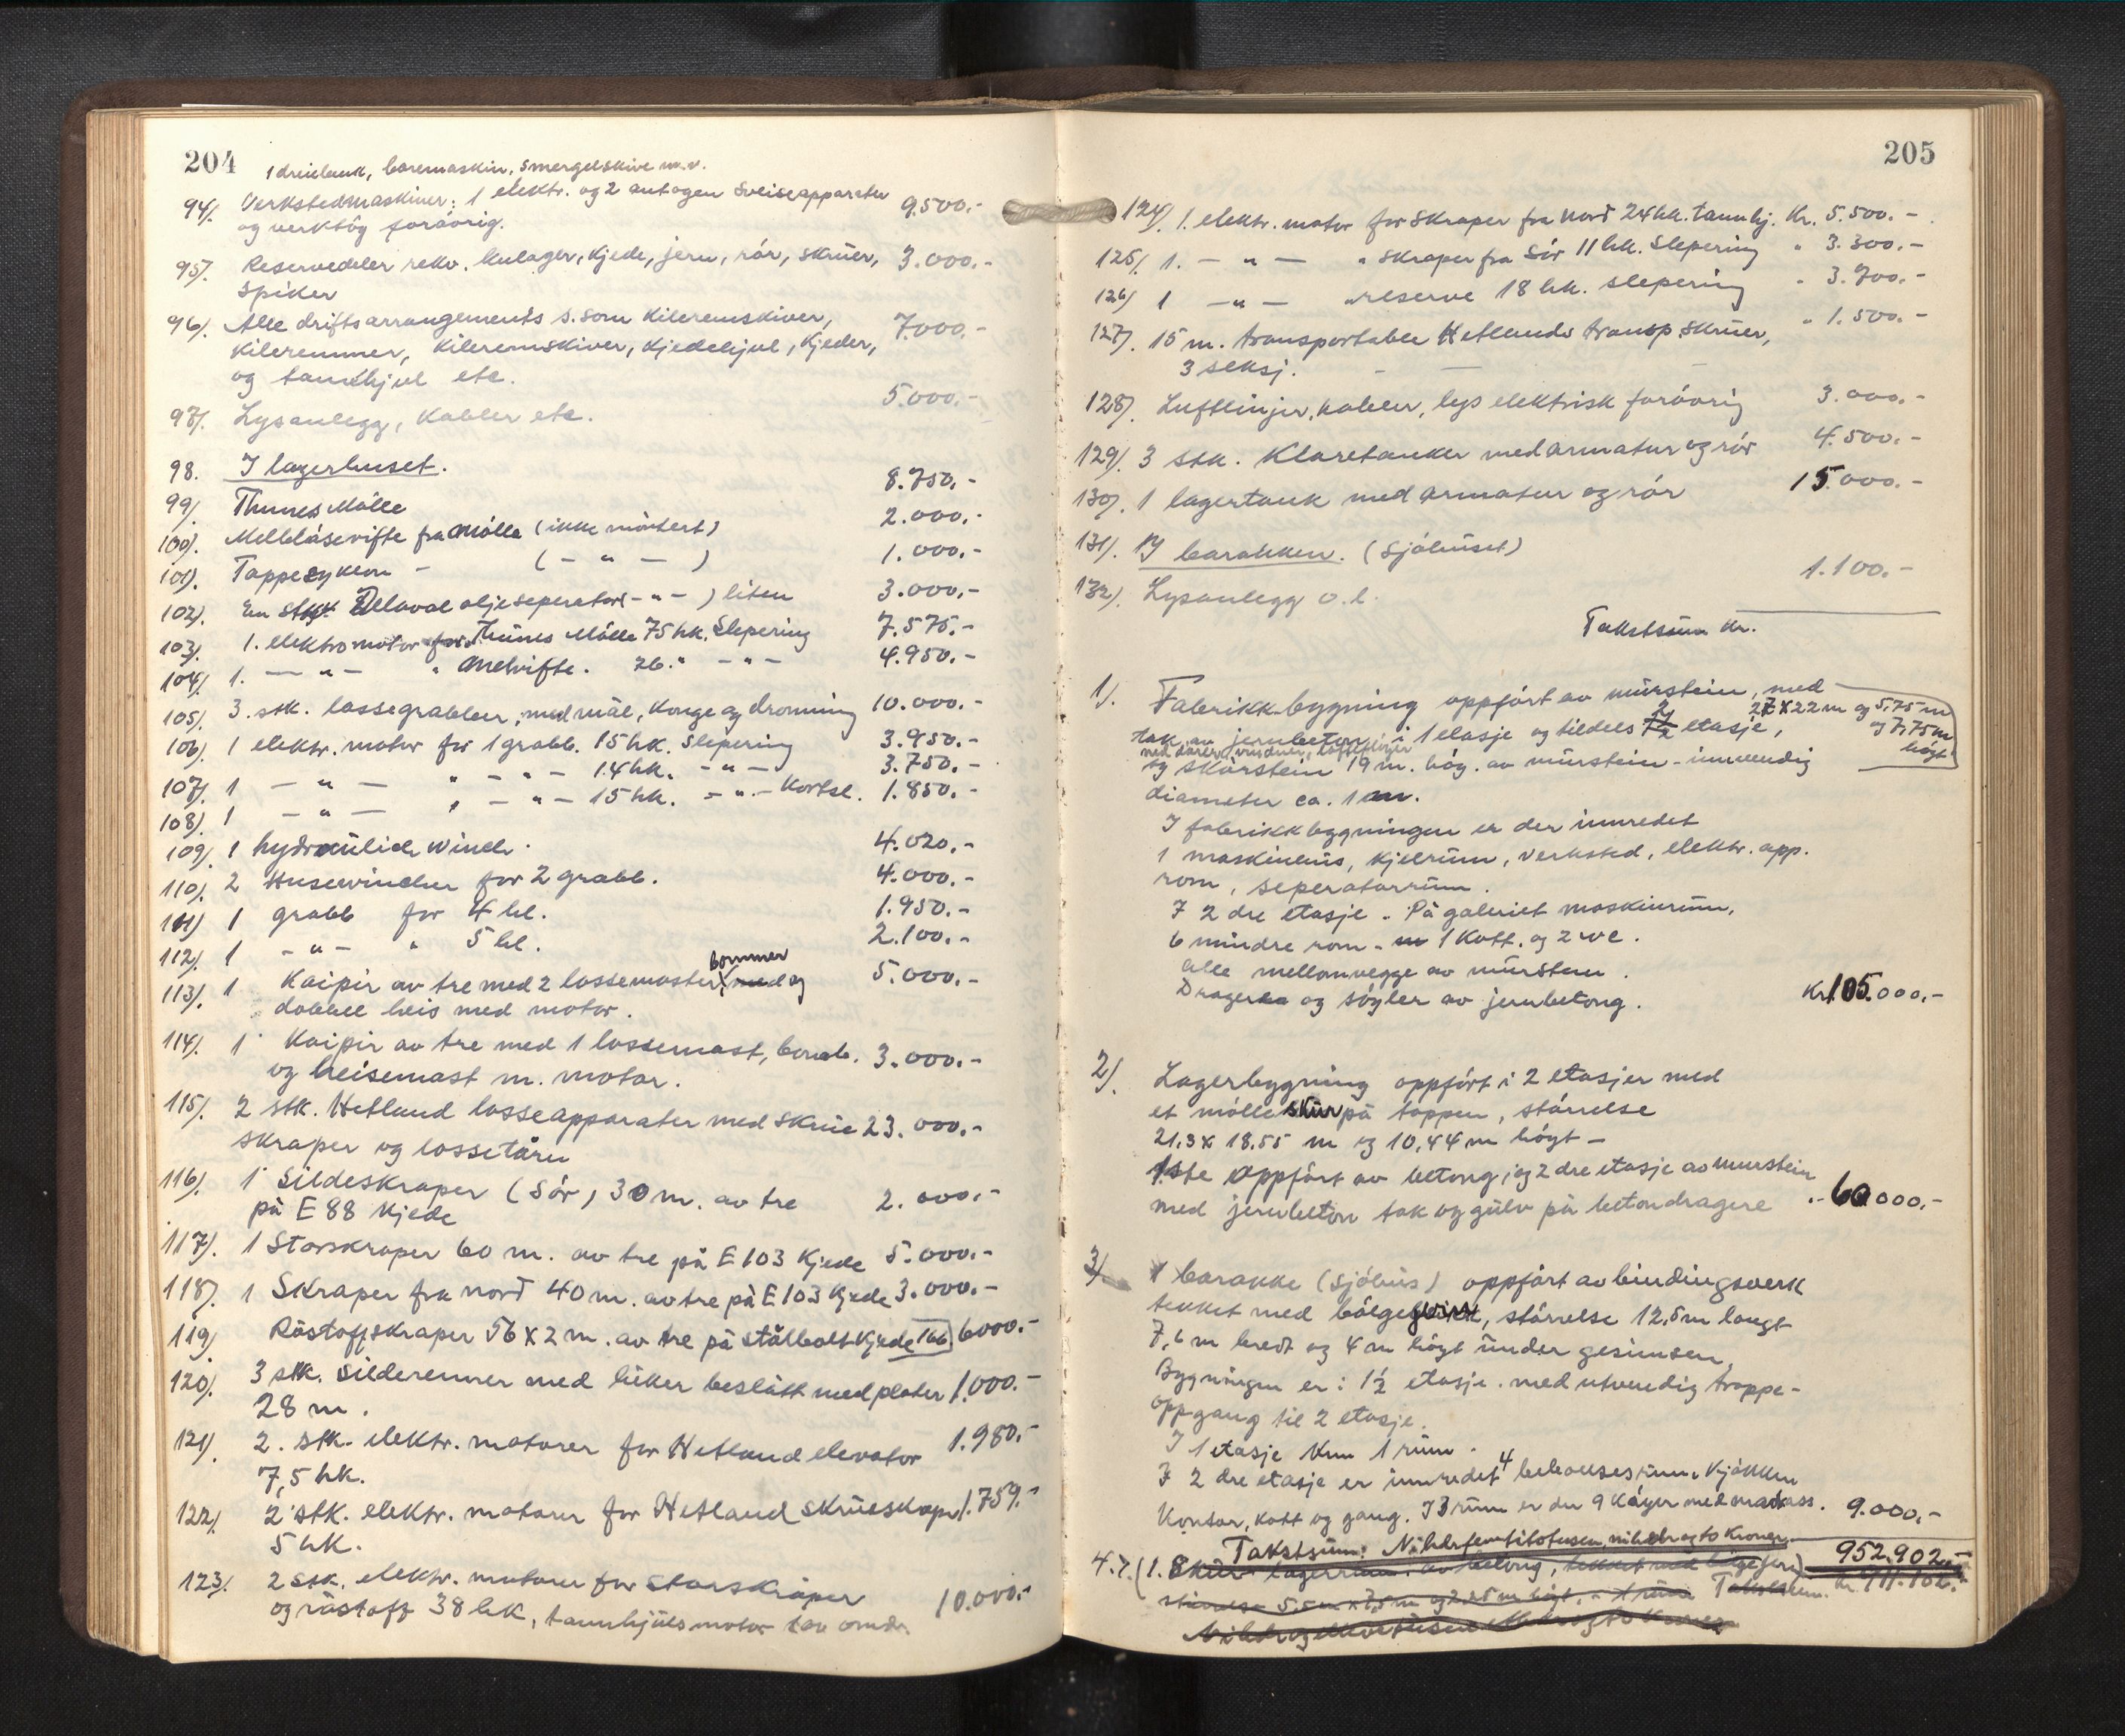 204
1 dreiebenk, boremaskin, smergelskive m.v.
94). Verkstedmaskiner: 1 elektr. og 2 autogen sveiseapparater 9.500.-
og verktøy forøvrig.
95). Reservedeler rekv. kulager, kjede, jern, rør, skruer, 3.000.-
spiker
96). Alle driftsarrangements s.som kileremskiver, 7.000.-
kileremmer, kileremskiver, kjedehjul, kjeder,
og tannhjul etc.
97). Lysanlegg, kabler etc. 5.000.-
98. I lagerhuset.
99). Thunes Mølle 8.750.-
100). Melblåsevifte fra Mølle (ikke montert) 2.000.-
101). Tappesyklon - ( - " - ) 1.000.-
102). En stk. Delaval oljeseperator ( - " - ) liten 3.000.-
103). 1. elektromotor for Thunes Mølle 75 hk. Slepering 7.575.-
104). 1. - " - " Melvifte. 26. " - " - 4.950.-
105). 3. stk. lossegrabber, med mål, konge og dronning 10.000.-
106). 1 elektr. motor for 1 grabb. 15 hk. slepering 3.950.-
107). 1 - " - " - " - 14 hk. - " - 3.750.-
108). 1 - " - " - " - 15 hk. - " - Kortsl. 1.850.-
109). 1 hydraulich winch. 4.020.-
110). 2 Husewincher for 2 grabb. 4.000.-
111) 1 grabb for 4 hl. 1.950.-
112). 1 - " - " 5 hl. 2.100.-
bommer
113). 1 Kaipir av tre med 2 lossemaster, med og 5.000.-
dobbel heis med motor.
114). 1 Kaipir av tre med 1 lossemast, bomb. 3.000.-
og heisemast m. motor.
115). 2 stk. Hetland losseapparater med skrue 23.000.-
skraper og lossetårn
116). 1 Sildeskraper (Sør) 30 m. av tre 2.000.-
på E 88 kjede
117). 1 Storskraper 60 m. av tre på E 103 kjede 5.000.-
118). 1 Skraper fra nord 40 m. av tre på E 103 kjede 3.000.-
119) Råstoffskraper 56 X 2 m. av tre på stålboltkjede 166 6000.-
120). 3 stk. silderenner med luker beslått med plater 1.000.-
28 m.
121). 2. stk. elektr. motorer for Hetland elevator 1.980.-
7,5 hk.
122). 2 stk. elektr. motorer for Hetland skrueskraper 1.759.-
5 hk.
123). 2 stk. elektr. motorer for storskraper
og råstoff 38 hk, tannhjulsmotor lav omdr. 10.000.-
205
124). 1. elektr. motor for skraper fra nord 24 hk. tannhj. Kr. 5.500.-
125). 1. - " - " skraper fra Sør 11 hk. Slepering " 3.300.-
126) 1 - " - " reserve 18 hk. slepering " 3.700.-
127). 15 m. transportable Hetlands transp. skruer, " 1.500.-
3 seksj.
128). Luftlinjer, kabler, lys elektrisk forøvrig 3.000.-
129). 3 stk. Klaretanker med armatur og rør 4.500.-
130). 1 lagertank med armatur og rør 15.000.-
131). I barakken. (Sjøhuset)
132). Lysanlegg o.l. 1.100.-
Takstsum kr.
1). Fabrikk-bygning oppført av murstein, med 27 X 22 m og 5.75 m
tak av jernbeton i 1 etasje og tildels 2 etasje, og 7,75 m høgt
med dører, vinduer,
og skorstein 19 m. høg. av murstein - innvendig
diameter ca. 1 m.
I fabrikkbygningen er der innredet
1 maskinhus, kjelrum, verksted, elektr. app.
rom, seperatorrum.
I 2 dre etasje. På galeriet maskinrum,
6 mindre rom - 1 Kott. og 2 wc.
alle mellomvegge av murstein.
Dragere og søyler av jernbetong. Kr. 105.000.-
2). Lagerbygning oppført i 2 etasjer med
et mølleskur på toppen, størrelse
21,3 X 18.55 m og 10,44 m høgt -
1ste oppført av betong, og 2 dre etasje av murstein
med jernbeton tak og gulv på betondragere " 60.000.-
3) 1 barakke (sjøhus) oppført av bindingsverk
tekket med bølgeblikk, størrelse 12,5 m langt
7,6 m bredt og 4 m høgt under gesimsen,
Bygningen er i 1½ etasje. med utvendig trappe-
oppgang til 2 etasje.
I 1 etasje kun 1 rum.
I 2 dre etasje er innredet 4 beboelsesrum. Kjøkken
Kontor, kott og gang. I 3 rum er der 9 køyer med madrass. 9.000.-
Takstsum: Nihundrefemtitotusen nihundreogto Kroner 952.902.-
4.). (1. Skur lagerrum. av betong, tekket med bølgejern) Takstsum. kr. 911.102.-
størrelse 5,5 m x 7,5 m og 2.25 m høgt. - 1 rum